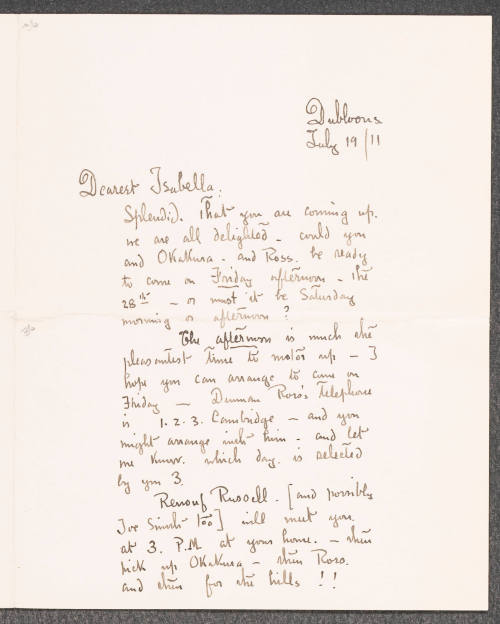 Dubloons
July 19/11
Dearest Isabella:
Splendid. That you are coming up.
we are all delighted – could you
and Okakura – and Ross. be ready
to come on Friday afternoon – the
28th – or must it be Saturday
morning or afternoon?
The afternoon is much the
pleasantest time to motor up – I
hope you can arrange to come on
Friday — Denman Ross's telephone
is 1.2.3. Cambridge – and you
might arrange with him – and let
me know. which day. is selected
by you 3.
Renouf Russell – [and possibly
Joe Smith too] will meet you.
at 3. P.M at your home. – then
pick up Okakura – then Ross.
and then for the hills !!